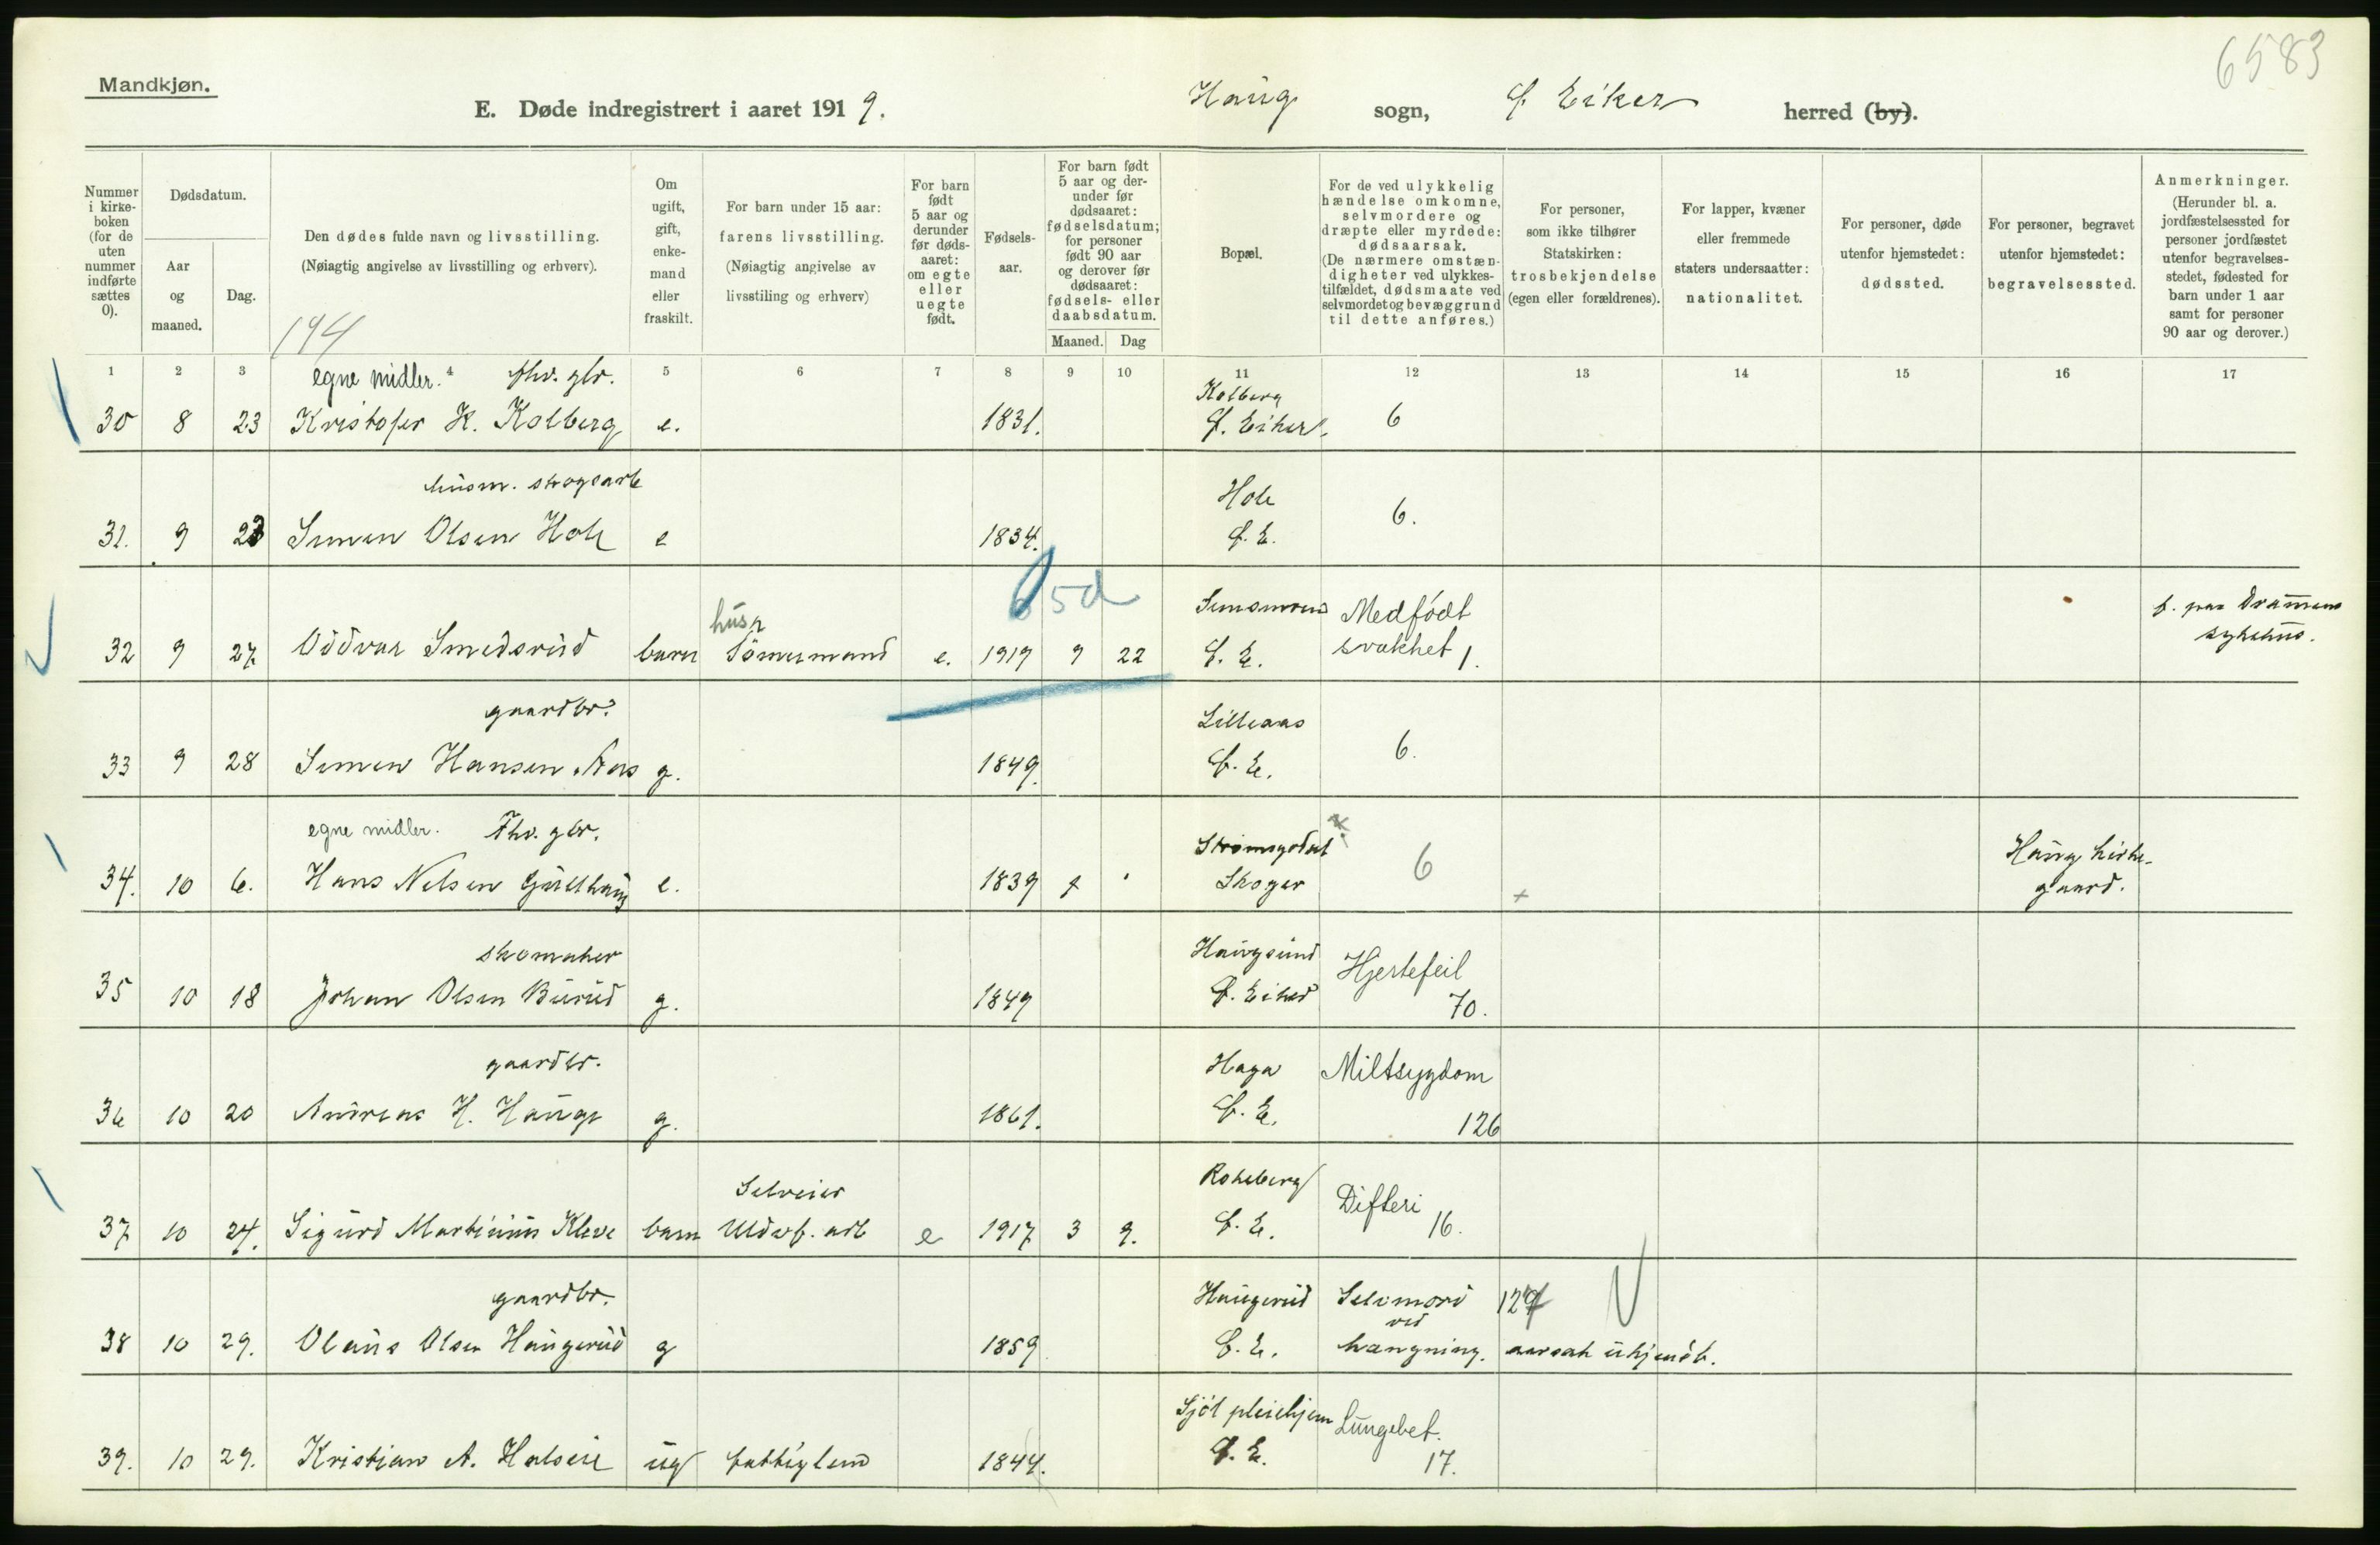 6583
Mandkjøn.
E. Døde indregistrert i aaret 1919.
Haug sogn, Ø. Eiker herred (by).
Nummer i kirke-boken (for de uten nummer indførte sættes 0).
Dødsdatum.
Aar og maaned.
Dag.
Den dødes fulde navn og livsstilling.
(Nøiagtig angivelse av livsstilling og erhverv).
194
Om ugift, gift, enke-mand eller fraskilt.
For barn under 15 aar:
farens livsstilling.
(Nøiagtig angivelse av livsstiling og erhverv)
For barn født 5 aar og derunder før døds-aaret: om egte eller uegte født.
Fødsels-aar.
For barn født 5 aar og der-under før dødsaaret: fødselsdatum; for personer født 90 aar og derover før dødsaaret: fødsels- eller daabsdatum.
Maaned. Dag
Bopæl.
For de ved ulykkelig hændelse omkomne, selvmordere og dræpte eller myrdede: dødsaarsak.
(De nærmere omstæn-digheter ved ulykkes-tilfældet, dødsmaate ved selvmordet og bevæggrund til dette anføres.)
For personer, som ikke tilhører Statskirken: trosbekjendelse (egen eller forældrenes).
For lapper, kvæner eller fremmede staters undersaatter: nationalitet.
For personer, døde utenfor hjemstedet: dødssted.
For personer, begravet utenfor hjemstedet: begravelsessted.
Anmerkninger.
(Herunder bl. a. jordfæstelsessted for personer jordfæstet utenfor begravelses-stedet, fødested for barn under 1 aar samt for personer 90 aar og derover.)
1 2 3 4 5 6 7 8 9 10 11 12 13 14 15 16 17
egne midler. fhv. gbr. Kolberg
30 8 23 Kristofer H. Kolberg e. 1831. Ø. Eiker. 6
husm. skogsarb Hole
31. 9 23 Simen Olsen Hole e 1834. Ø. E. 6.
5d
husm Medfødt f. paa Drammens
32 9 27. Oddvar Smedsrud barn e. 1919 9 22 Ø. E. svakhet 1. sykehus.
gaardbr. Lilleaas
33 9 28 Simen Hansen Aas g. 1849. Ø. E. 6.
egne midler. Fhv. gbr. Strømsgodset Haug kirke-
34. 10 6. Hans Nilsen Gullhaug e. 1839 Skoger 6 gaard.
skomaker Haugsund Hjertefeil
35 10 18 Johan Olsen Burud g. 1849 Ø. Eiker 70.
gaardbr. Haga Miltsygdom
36 10 20 Andreas H. Hauge g. 1861. Ø. E. 126
Selveier Difteri
37 10 24. Sigurd Martinius Kleve barn Uldvf. arb e 1917 3 9. Ø. E. 16.
gaardbr. Haugerud Selvmord
ved
38 10 29. Olaus Olsen Haugerud g 1859 Ø. E. hængning. aarsak ukjendt.
pleiehjem Lungebet.
39. 10 29. Kristian A. Halseie ug fattiglem 1844. Ø. E. 17.